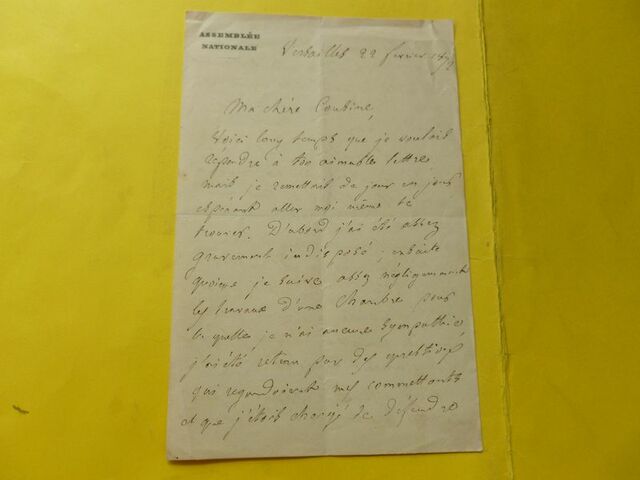 ASSEMBLÉE
NATIONALE
Versailles 22 février 187
Ma chère Cousine,
Voici long temps que je voulois
répondre à ton aimable lettre
mais je remettois de jour en jour
espérant aller moi même te
trouver. D'abord j'ai été assez
gravement indisposé ; ensuite
quoique je suive assez négligemment
les travaux d'une Chambre pour
la quelle je n'ai aucune sympathie,
j'ai été retenu par des questions
qui regardoient mes commettants
et que j'étois chargé de défendre